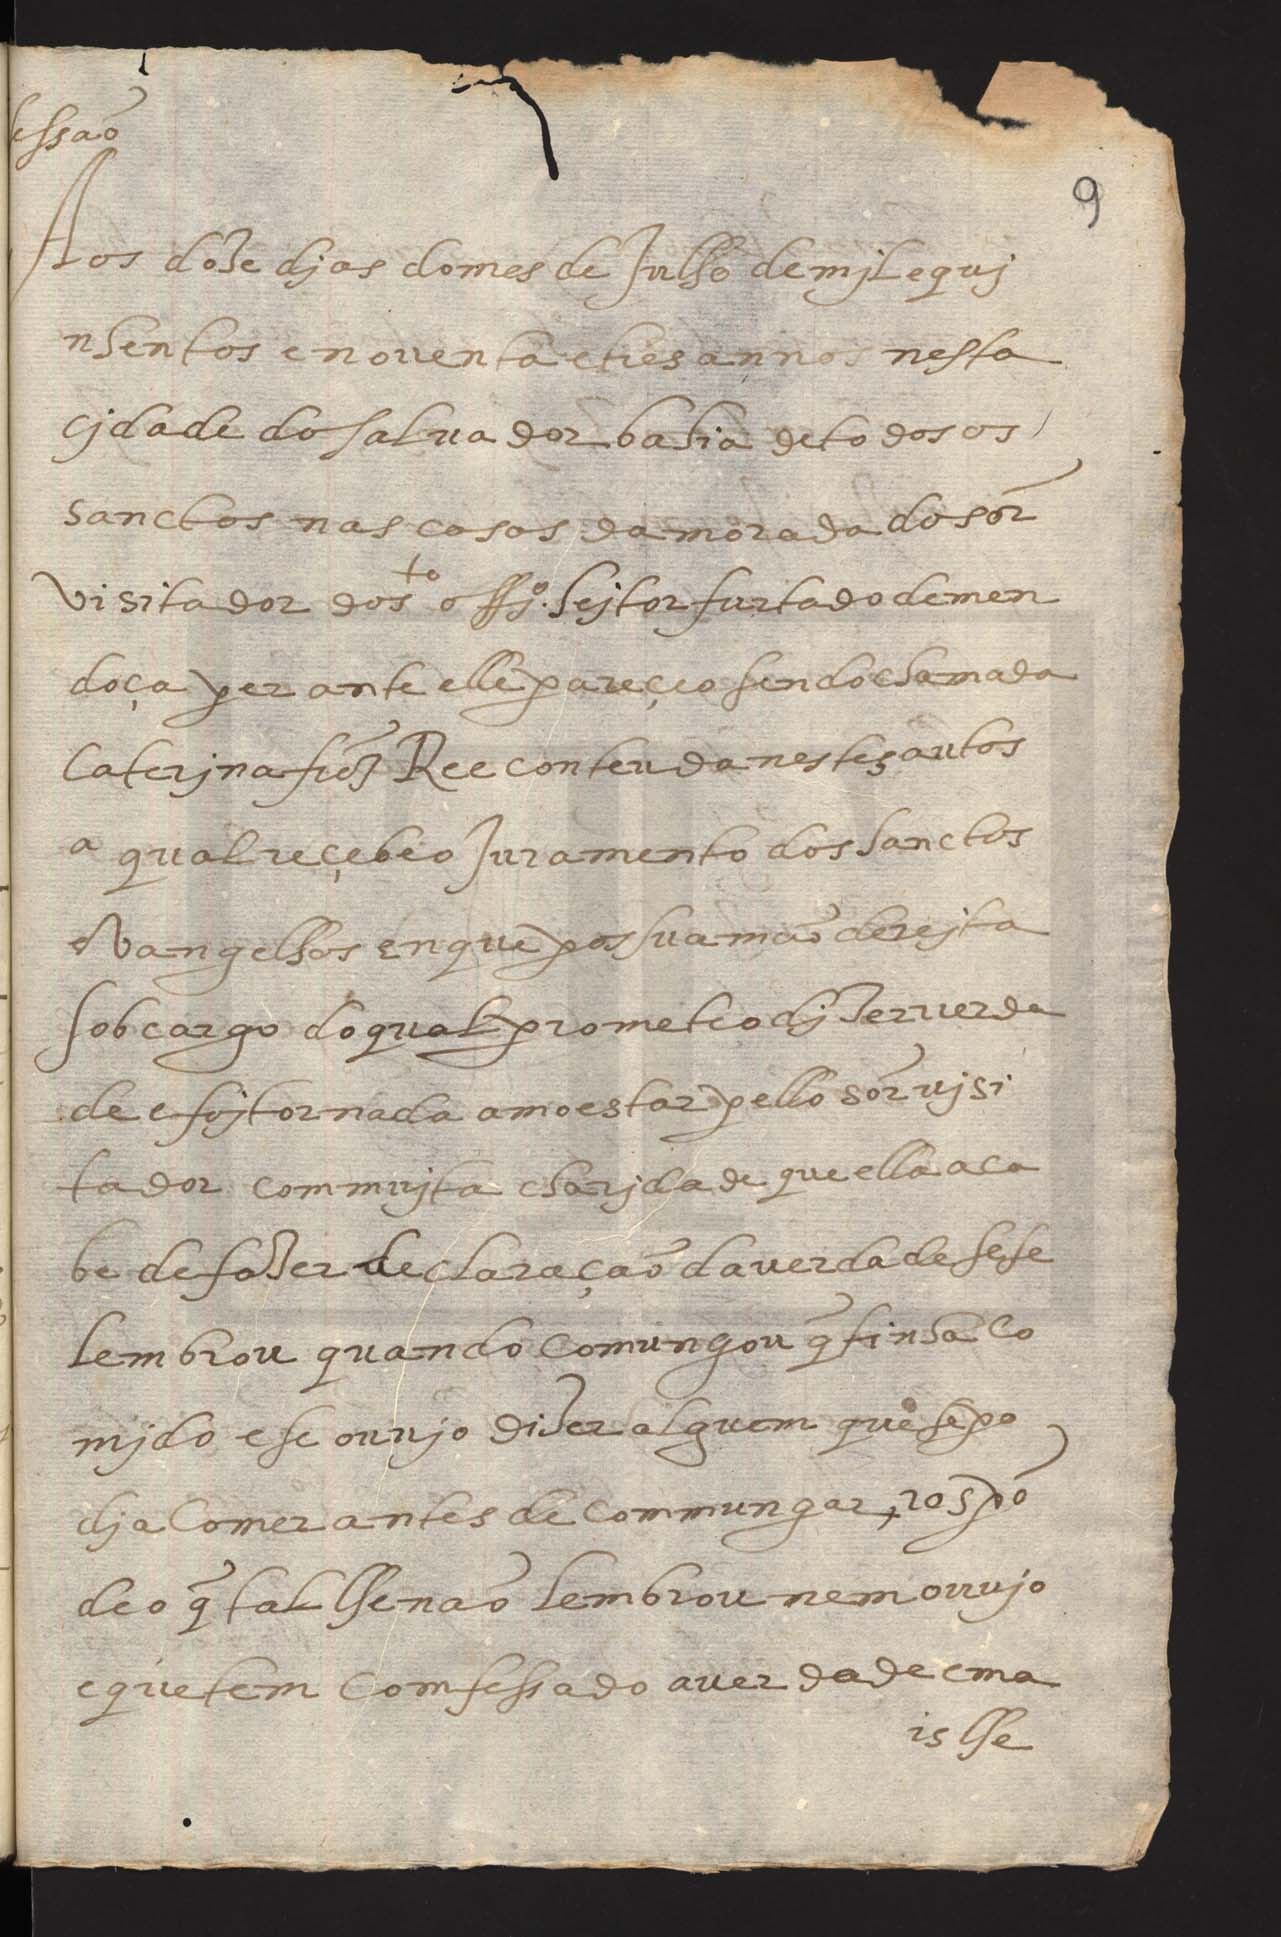 essaõ
9
Aos doze djas do mes de Julho de mjl e quj
nhentos e nouenta e tres annos nesta
cjdade do saluador bahia de todos os
sanctos nas casas da morada do sõr
visitador do s.to offj.o hejtor furtado de men
doça perante elle pareçeo sendo chamada
Caterjna froẽz Ree conteuda nestes autos
a qual reçebeo Juramento dos sanctos
evangelhos en que pos sua maõ derejta
sob cargo do qual prometeo djzer verda
de e foj tornada amoestar pello sõr vjsi
tador com mujta charjdade que ella aca
be de fazer declaraçaõ da verdade se se
lembrou quando comungou q̃ tinha co
mjdo e se ouujo dizer alguem que se po
dja comer antes de commungar, respõ
deo q̃ tal lhe naõ lembrou nem ouujo
e que tem comfessado a uerdade e ma
is lhe